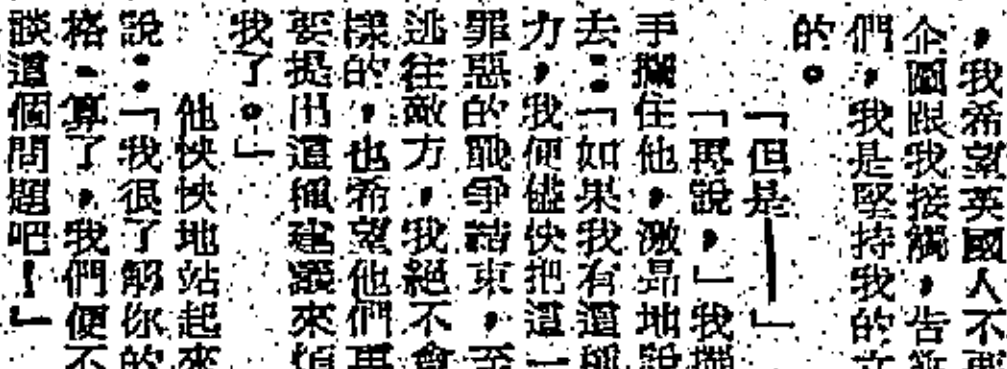 ，我希望英國人不要
企圖跟我接觸，告訴
們，我是堅持我的立
的。
「但是——」
「再說，」我擺
手攔住他，激昂地說
去：「如果我有這種
力，我便儘快把這一
罪惡的戰爭結束，至
逃往敵方，我絕不會
樣的，也希望他們再
要提出這種建議來煩
我了。」
他怏怏地站起來
說：「我很了解你的
格，算了，我們便不
談這個問題吧！」